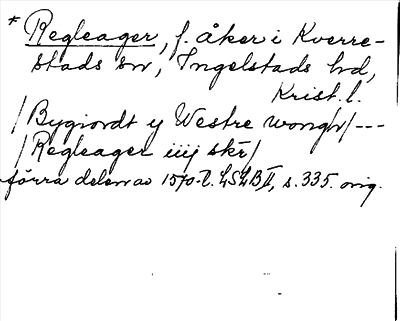 * Regleager, f. åker i Kverre-
stads sn, Ingelstads hd,
Krist. l.
/Bygiordt y Westre wongn/---
/Regleager iiij skr/
förra delen av 1570-t. LSLB II, s. 335. orig.